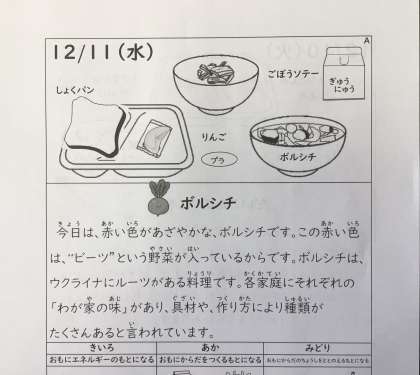 A
12/11(水)
しょくパン
ごぼうソテー
ぎゅうにゅう
りんご
プラ
ボルシチ
ボルシチ
今日は、赤い色があざやかな、ボルシチです。この赤い色
は、“ビーツ”という野菜が入っているからです。ボルシチは、
ウクライナにルーツがある料理です。各家庭にそれぞれの
「わが家の味」があり、具材や、作り方により種類が
たくさんあると言われています。
きいろ あか みどり
おもにエネルギーのもとになる おもにからだをつくるもとになる おもにからだのちょうしをととのえるもとになる